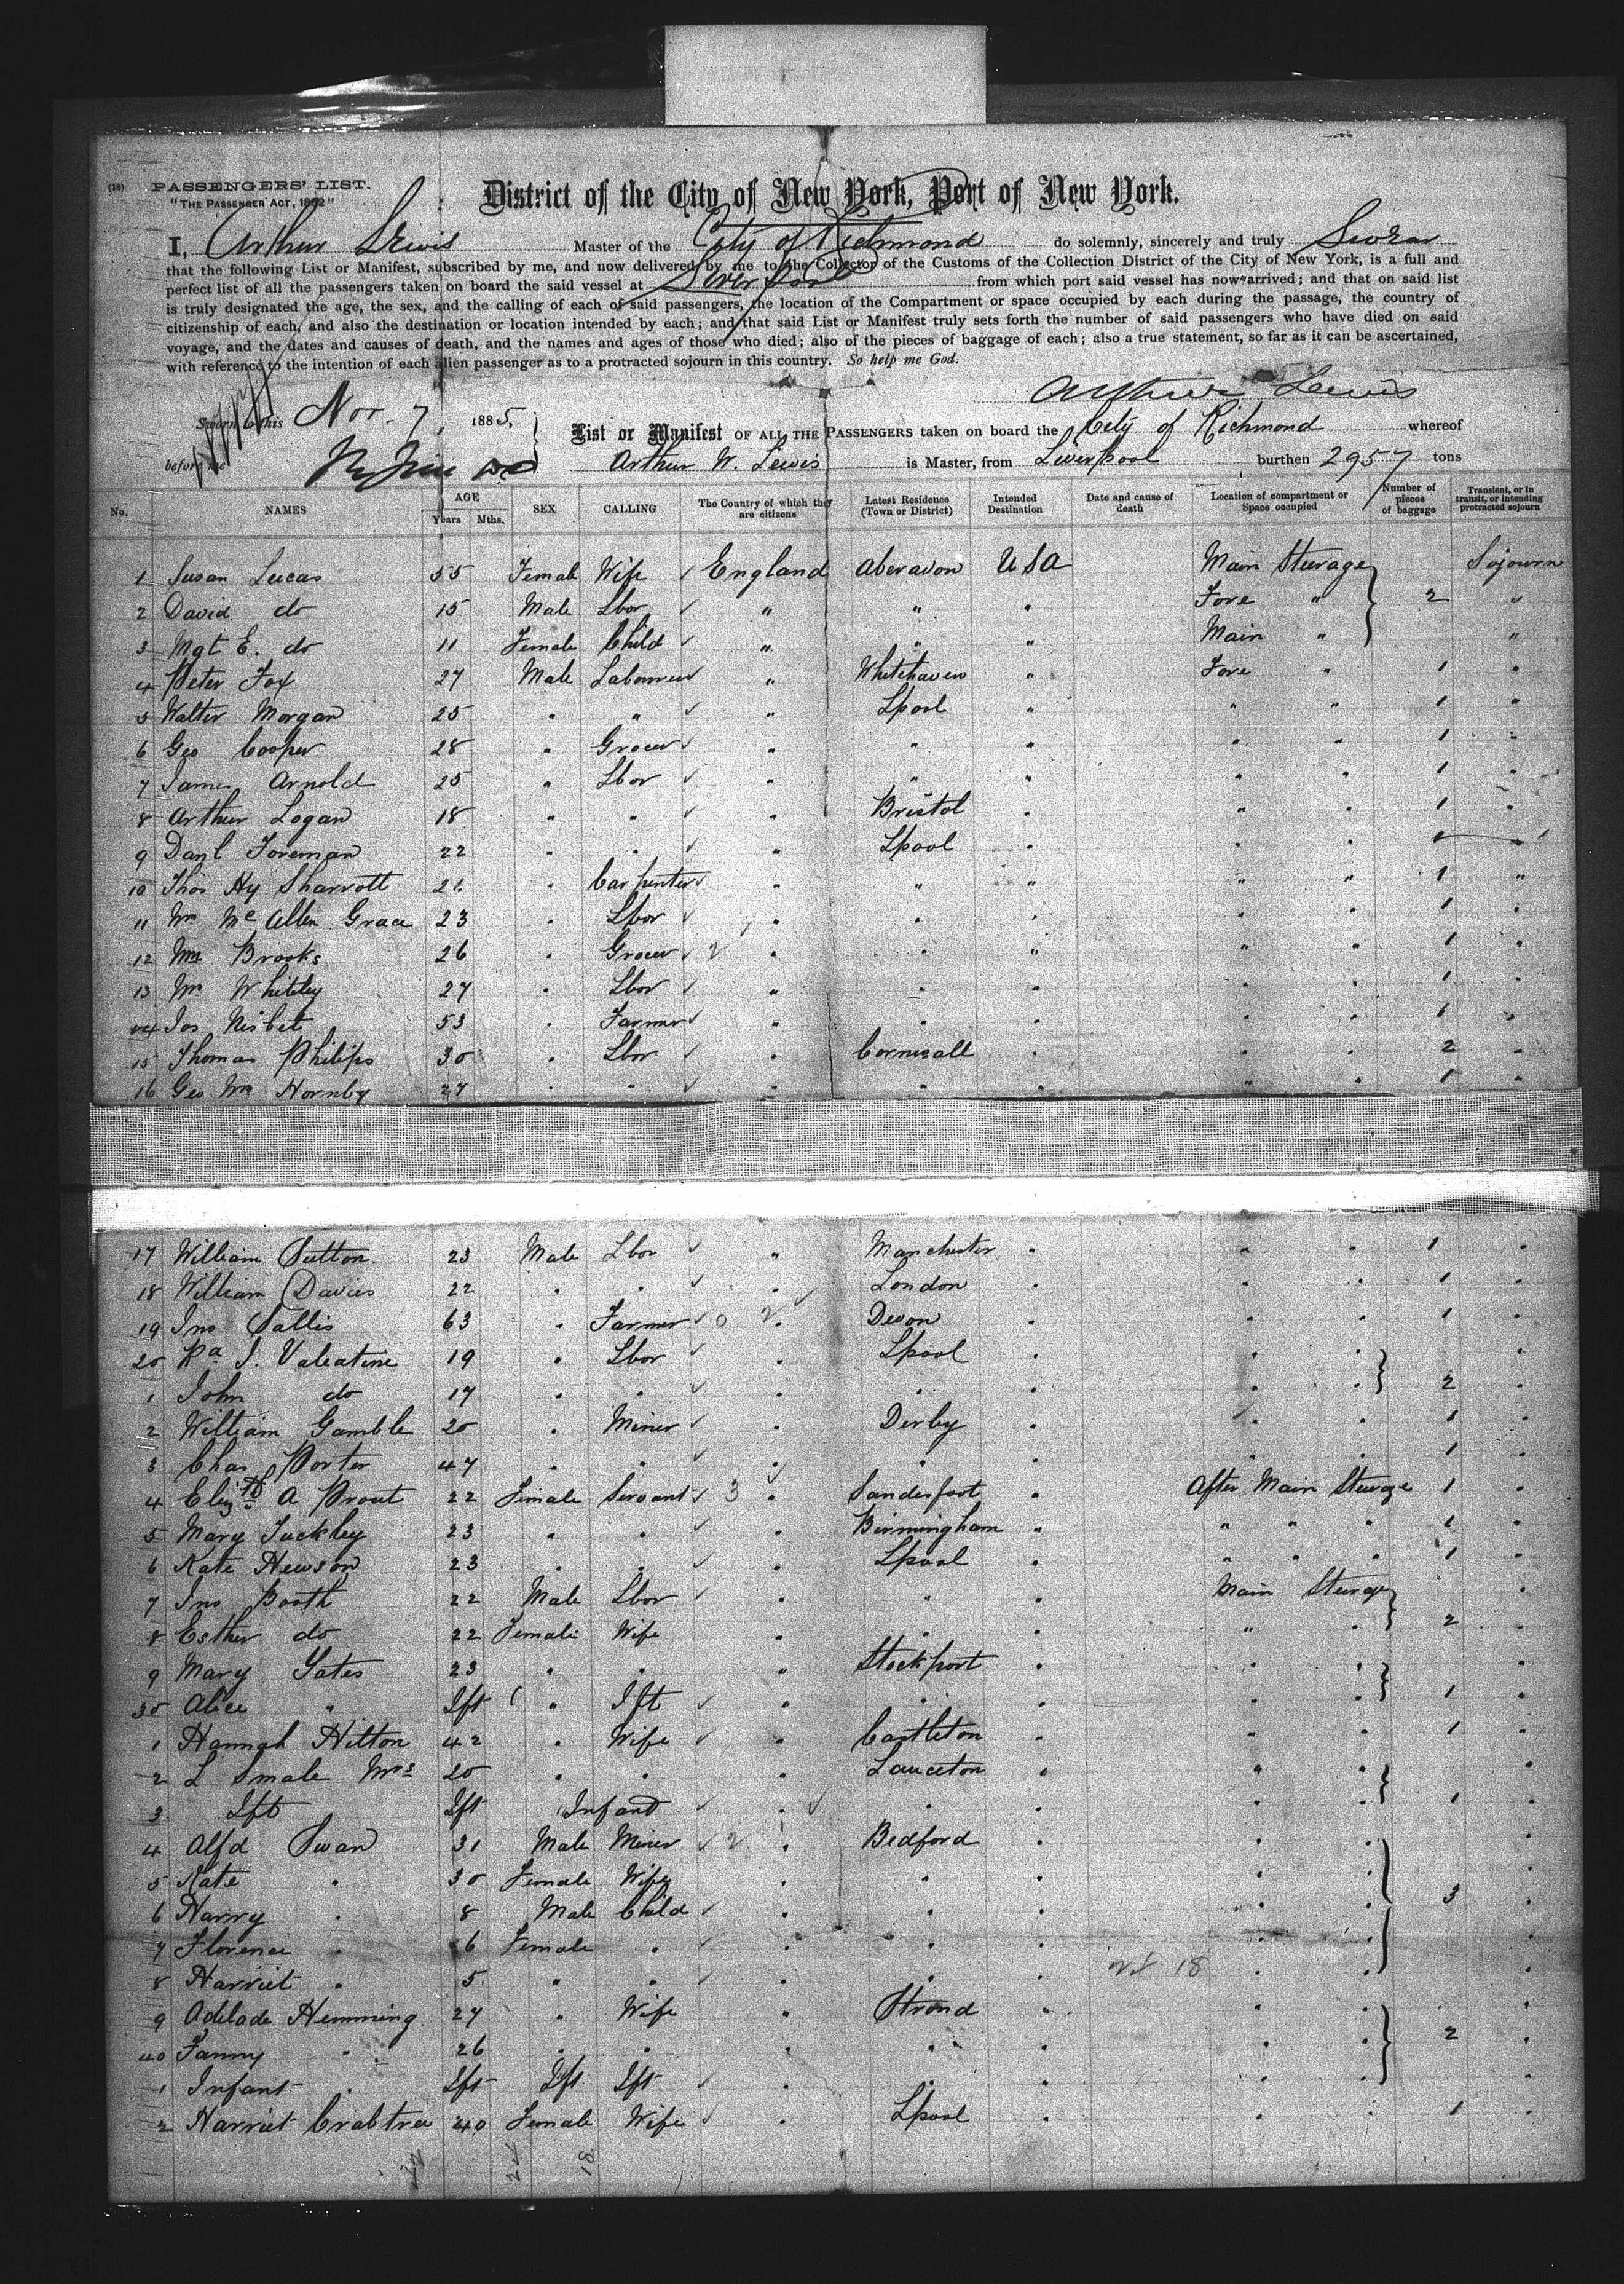 (18) PASSENGERS' LIST.
"THE PASSENGER ACT, 1882"
District of the City of New York, Port of New York.
I, Arthur Lewis Master of the City of Richmond do solemnly, sincerely and truly Swear
that the following List or Manifest, subscribed by me, and now delivered by me to the Collector of the Customs of the Collection District of the City of New York, is a full and
perfect list of all the passengers taken on board the said vessel at Liverpool from which port said vessel has now arrived; and that on said list
is truly designated the age, the sex, and the calling of each of said passengers, the location of the Compartment or space occupied by each during the passage, the country of
citizenship of each, and also the destination or location intended by each; and that said List or Manifest truly sets forth the number of said passengers who have died on said
voyage, and the dates and causes of death, and the names and ages of those who died; also of the pieces of baggage of each; also a true statement, so far as it can be ascertained,
with reference to the intention of each alien passenger as to a protracted sojourn in this country. So help me God.
Arthur Lewis
Sworn to this Nov. 7, 1885,
before me
List or Manifest OF ALL THE PASSENGERS taken on board the City of Richmond whereof
Arthur W. Lewis is Master, from Liverpool burthen 2957 tons
No. NAMES AGE Years Mths. SEX CALLING The Country of which they are citizens Latest Residence (Town or District) Intended Destination Date and cause of death Location of compartment or Space occupied Number of pieces of baggage Transient, or in transit, or intending protracted sojourn
1 Susan Lucas 55 Female Wife England Aberavon USA Main Steerage Sojourn
2 David do 15 Male Lbor " " " Fore " 2 "
3 Mgt E. do 11 Female Child " " " Main " "
4 Peter Fox 27 Male Labourer " Whitehaven " Fore " 1 "
5 Walter Morgan 25 " " " Lpool " " " 1 "
6 Geo Cooper 28 " Grocer " " " " " 1 "
7 James Arnold 25 " Lbor " " " " " 1 "
8 Arthur Logan 18 " " " Bristol " " " 1 "
9 Danl Foreman 22 " " " Lpool " " " 1 "
10 Thos Hy Sharrott 21 " Carpenter " " " " " 1 "
11 Wm McAllen Grace 23 " Lbor " " " " " 1 "
12 Wm Brooks 26 " Grocer 2 " " " " " 1 "
13 Wm Whiteley 27 " Lbor " " " " " 1 "
14 Jos Nisbet 53 " Farmer " " " " " 1 "
15 Thomas Philips 30 " Lbor " Cornwall " " " 2 "
16 Geo Wm Hornby 27 " " " " " " " 1 "
17 William Sutton 23 Male Lbor " Manchester " " " 1 "
18 William Davies 22 " " " London " " " 1 "
19 Jno Sallis 63 " Farmer 0 2 " Devon " " " 1 "
20 Ra J. Valentine 19 " Lbor " Lpool " " " "
1 John do 17 " " " " " " " 2 "
2 William Gamble 20 " Miner " Derby " " " 1 "
3 Chas Porter 47 " " " " " " " 1 "
4 Elizth A Prout 22 Female Servant 3 " Sandesfoot " After Main Steerage 1 "
5 Mary Tuckley 23 " " " Birmingham " " " " 1 "
6 Kate Hewson 23 " " " Lpool " " " " 1 "
7 Jno Booth 22 Male Lbor " " " Main Steerage "
8 Esther do 22 Female Wife " " " " " 2 "
9 Mary Yates 23 " " " Stockport " " " "
30 Alice " Ift " Ift " " " " " 1 "
1 Hannah Hilton 42 " Wife " Castleton " " " 1 "
2 L Smale Mrs 20 " " " Launceton " " " "
3 Ift Ift Infant " " " " " 1 "
4 Alfd Swan 31 Male Miner 2 " Bedford " " " "
5 Kate " 30 Female Wife " " " " " "
6 Harry " 8 Male Child " " " " " 3 "
7 Florence " 6 Female " " " " " " "
8 Harriet " 5 " " " " " 18 " " "
9 Adelade Hemming 27 " Wife " Strond " " " "
40 Fanny " 26 " " " " " " " 2 "
1 Infant " Ift Ift Ift " " " " " "
2 Harriet Crabtree 40 Female Wife " Lpool " " " 1 "
18